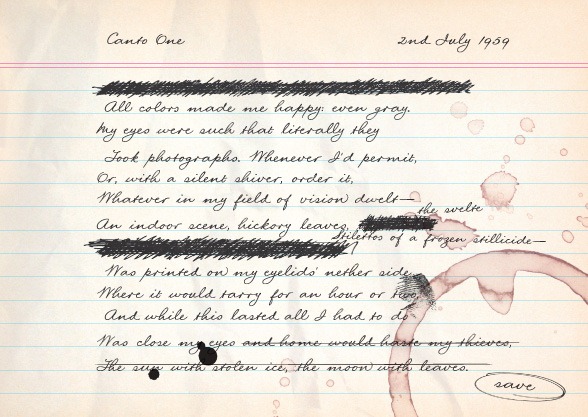 Canto One
2nd July 1959
All colors made me happy: even gray.
My eyes were such that literally they
Took photographs. Whenever I'd permit,
Or, with a silent shiver, order it,
Whatever in my field of vision dwelt—
An indoor scene, hickory leaves, the svelte
Stilettos of a frozen stillicide—
Was printed on my eyelids' nether side
Where it would tarry for an hour or two,
And while this lasted all I had to do
Was close my eyes and home would haste my thieves,
The sun with stolen ice, the moon with leaves.
save